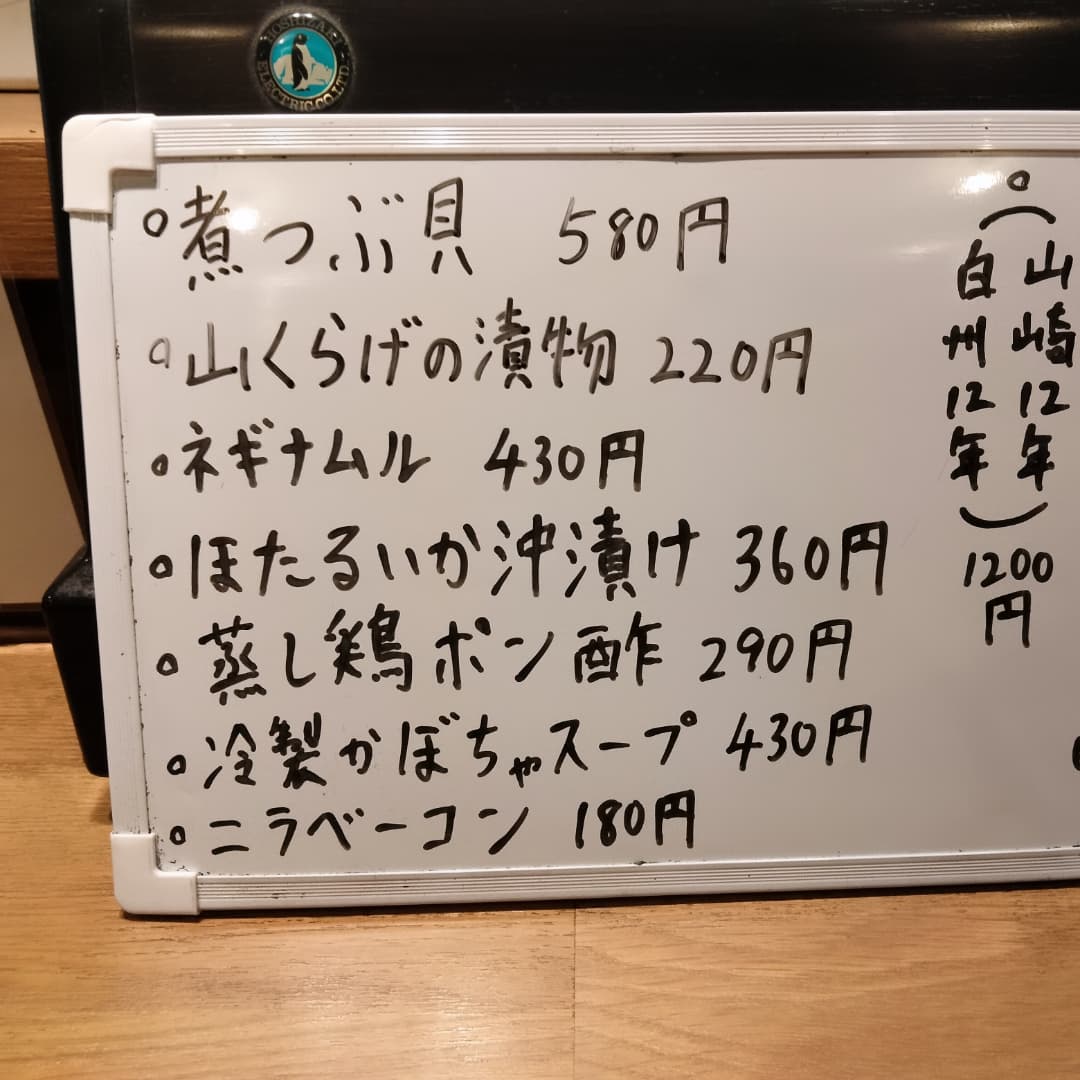 HOSHIZAKI
ELECTRIC.CO.LTD.
煮つぶ貝 580円
山くらげの漬物 220円
ネギナムル 430円
ほたるいか沖漬け 360円
蒸し鶏ポン酢 290円
冷製かぼちゃスープ 430円
ニラベーコン 180円
(山崎12年
白州12年)
1200
円